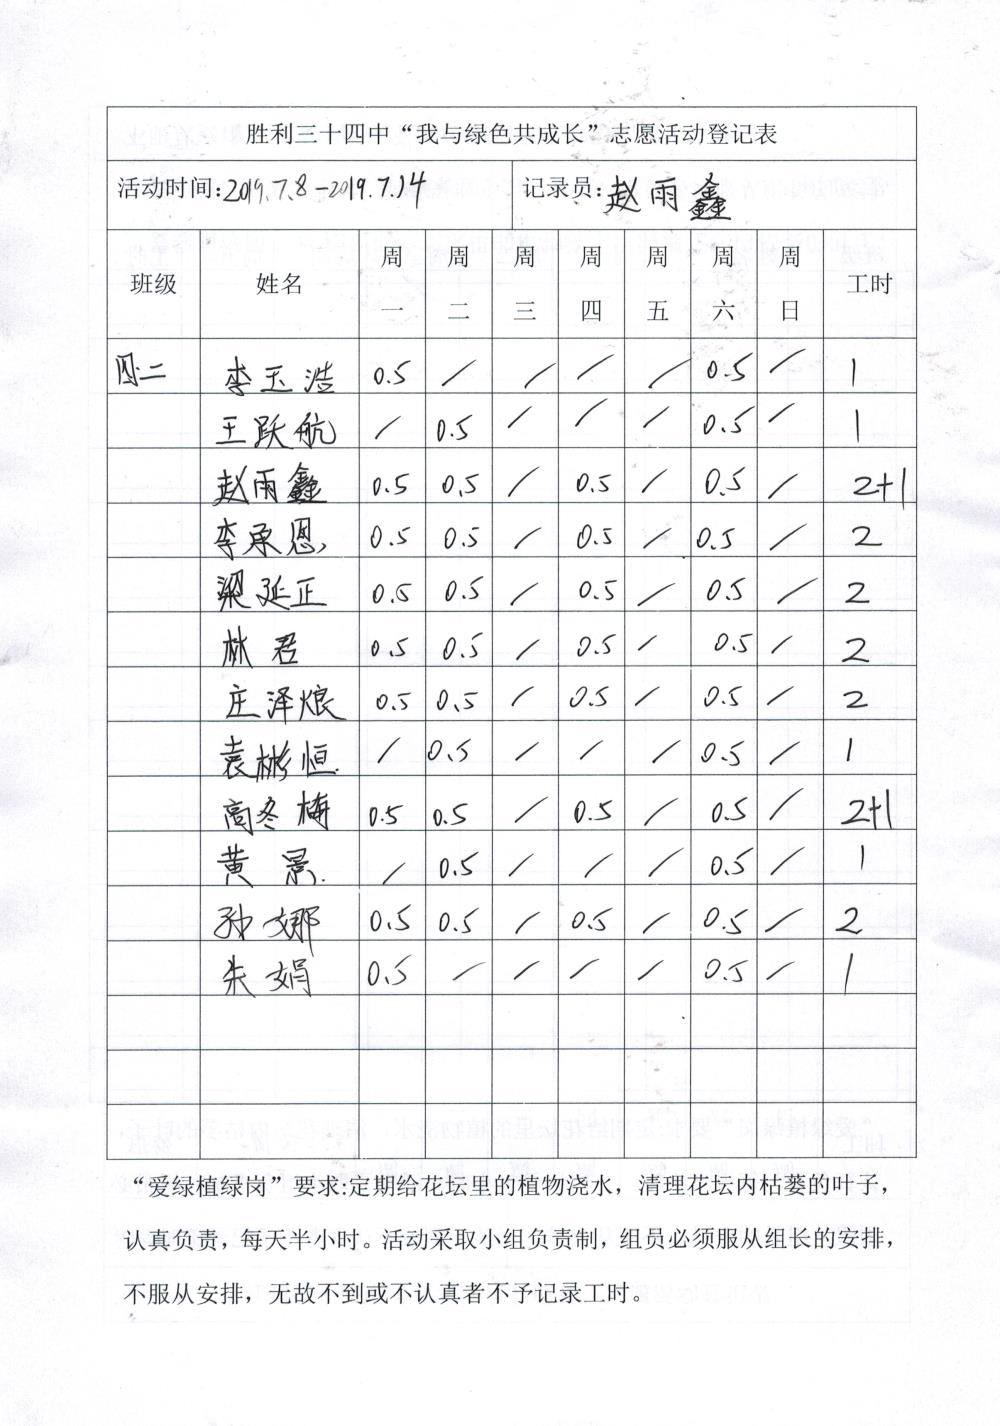 胜利三十四中“我与绿色共成长”志愿活动登记表
活动时间:2019.7.8-2019.7.14 记录员:赵雨鑫
班级 姓名 周一 周二 周三 周四 周五 周六 周日 工时
四.二 李玉浩 0.5 / / / / 0.5 / 1
王跃航 / 0.5 / / / 0.5 / 1
赵雨鑫 0.5 0.5 / 0.5 / 0.5 / 2+1
李承恩 0.5 0.5 / 0.5 / 0.5 / 2
梁延正 0.5 0.5 / 0.5 / 0.5 / 2
林君 0.5 0.5 / 0.5 / 0.5 / 2
庄泽烺 0.5 0.5 / 0.5 / 0.5 / 2
袁彬恒 / 0.5 / / / 0.5 / 1
高冬梅 0.5 0.5 / 0.5 / 0.5 / 2+1
黄景 / 0.5 / / / 0.5 / 1
孙娜 0.5 0.5 / 0.5 / 0.5 / 2
朱娟 0.5 / / / / 0.5 / 1
“爱绿植绿岗”要求:定期给花坛里的植物浇水，清理花坛内枯萎的叶子，
认真负责，每天半小时。活动采取小组负责制，组员必须服从组长的安排，
不服从安排，无故不到或不认真者不予记录工时。